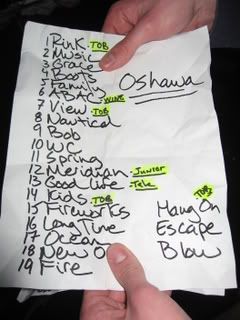 1 Rink TOB
2 Music
3 Grace
4 Boots
5 Family
6 ABAC WING
7 View TOB
8 Nautical
9 Bob
10 WC
11 Spring
12 Meridian Junior
13 Good Life Tele
14 Kids TOB
15 Fireworks
16 Long Time
17 Ocean
18 New O
19 Fire
Oshawa
TOB
Hang On
Escape
Blow